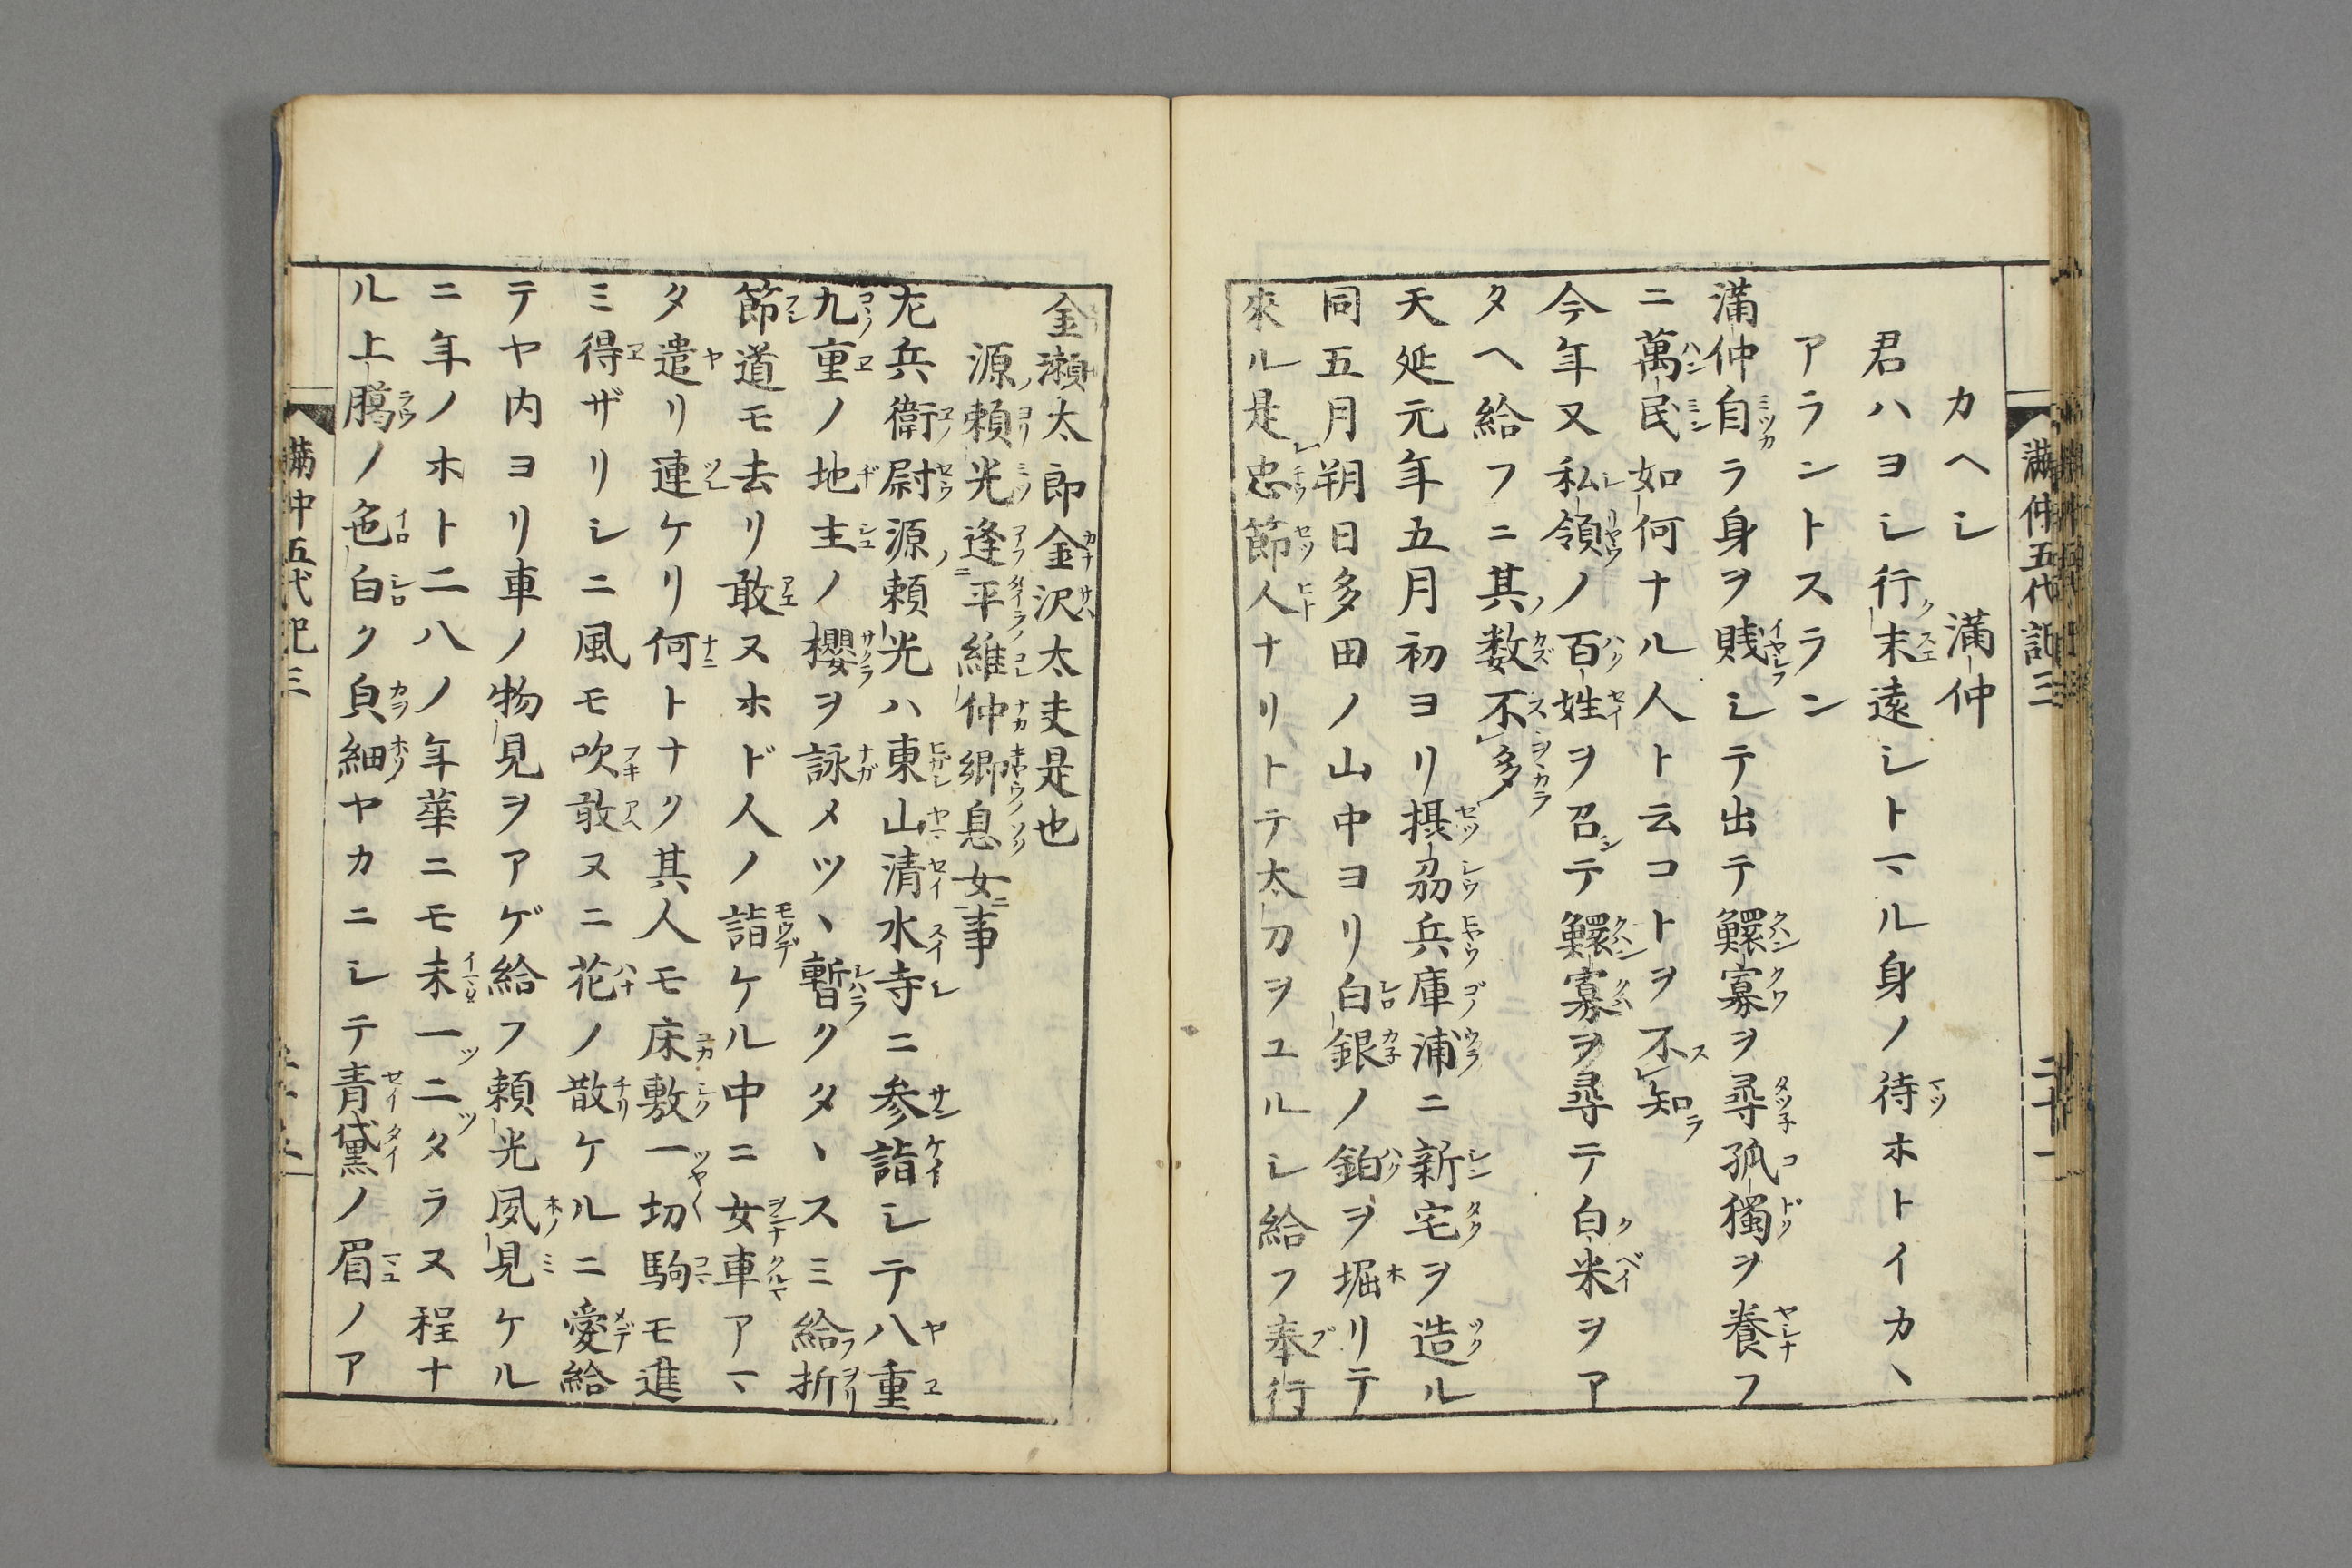 満仲五代記三
二十一
カヘシ　満仲
君ハヨシ行末遠シトマヽル身ノ待ホトイカヽ
アラントスラン
満仲自ラ身ヲ賎シテ出テ鰥寡ヲ尋孤獨ヲ養フ
ニ萬民如何ナル人ト云コトヲ不知
今年又私領ノ百姓ヲ召テ鰥寡ヲ尋テ白米ヲア
タヘ給フニ其数不多
天延元年五月初ヨリ摂刕兵庫浦ニ新宅ヲ造ル
同五月朔日多田ノ山中ヨリ白銀ノ鉑ヲ堀リテ
來ル是忠節人ナリトテ太刀ヲユルシ給フ奉行
金瀬太郎金沢太夫是也
源頼光逢平維仲郷息女事
左兵衛尉源頼光ハ東山清水寺ニ参詣シテ八重
九重ノ地主ノ櫻ヲ詠メツヽ暫クタヽスミ給折
節道モ去リ敢ヌホド人ノ詣ケル中ニ女車アマ
タ遣リ連ケリ何トナク其人モ床敷一切駒モ進
ミ得ザリシニ風モ吹敢ヌニ花ノ散ケルニ愛給
テヤ内ヨリ車ノ物見ヲアゲ給フ頼光夙見ケル
ニ年ノホト二八ノ年華ニモ未一二タラヌ程ナ
ル上臈ノ色白ク㒵細ヤカニシテ青黛ノ眉ノア
満仲五代記三